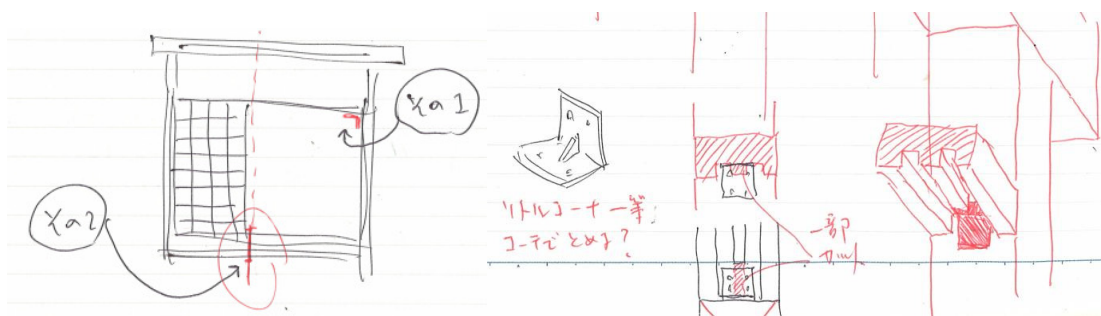 その1
その2
リトルコーナー等
コーチでとめる?
一部
カット